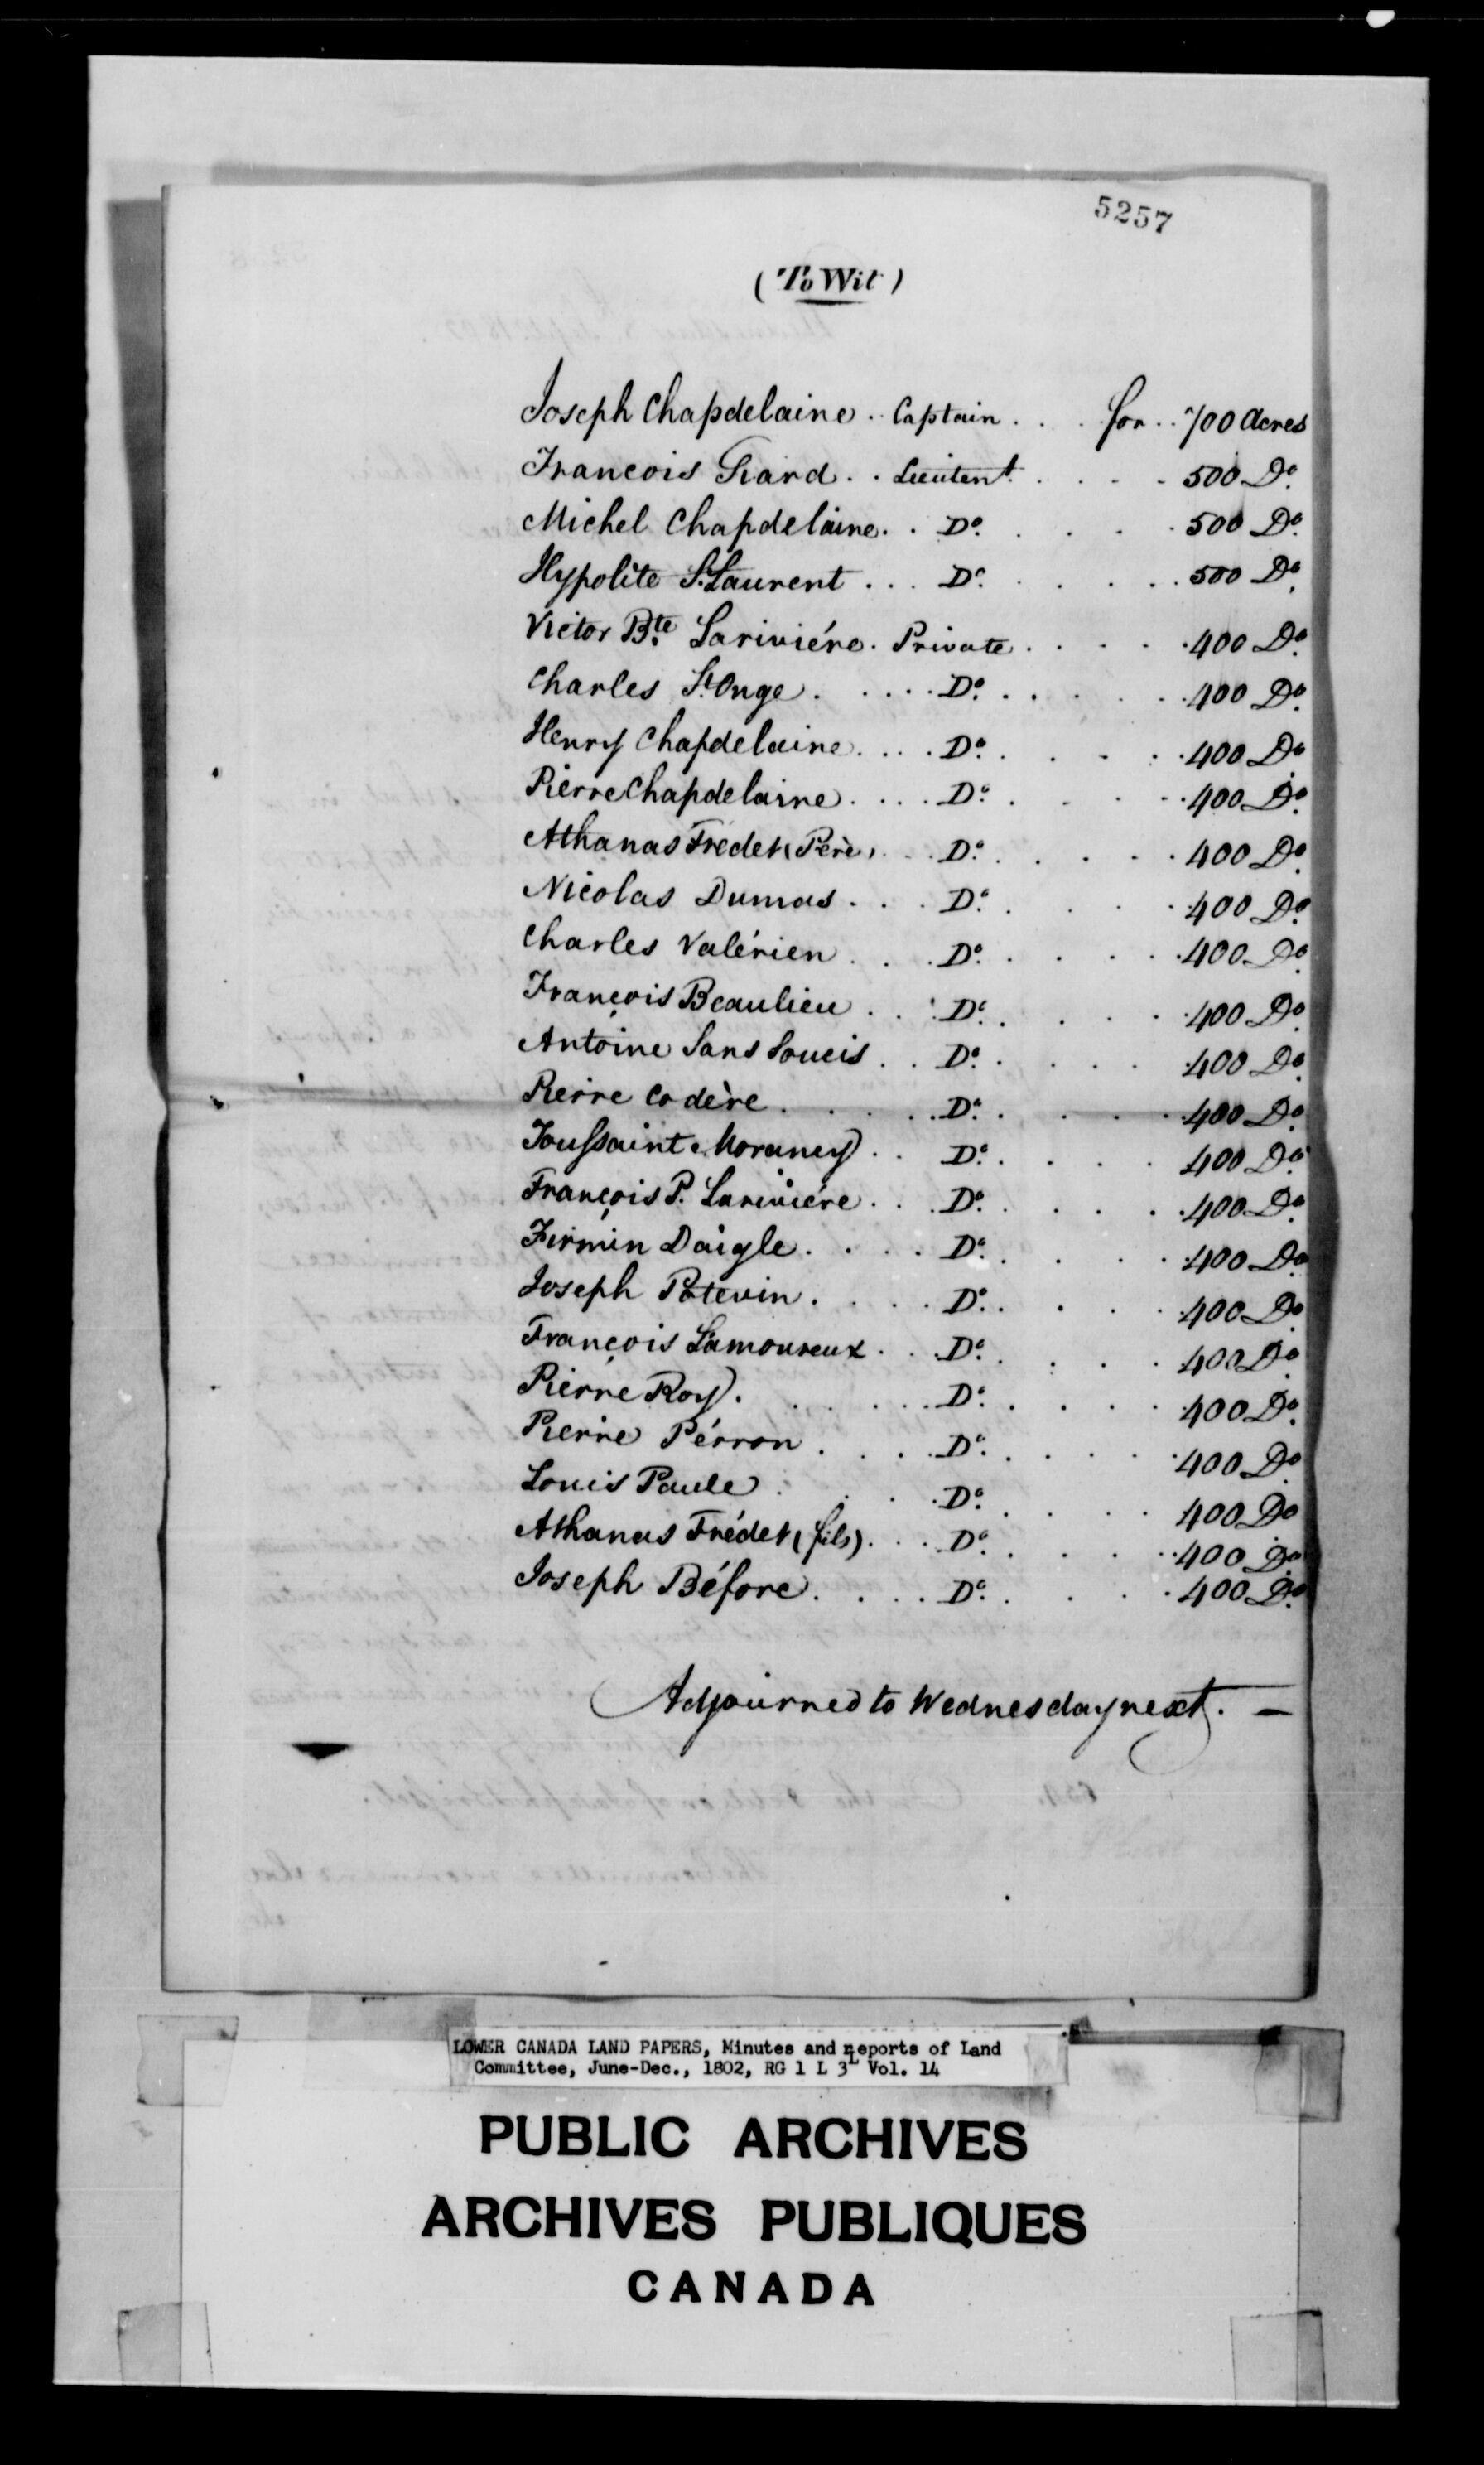 5257
(To Wit)
Joseph Chapdelaine .. Captain . . . for .. 700 Acres
Francois Giard . . Lieutent. . . . . 500 Do.
Michel Chapdelaine . . Do. . . . . 500 Do.
Hypolite St. Laurent . . . Do. . . . . 500 Do.
Victor Bte. Lariviére . Private . . . . 400 Do.
Charles St. Onge . . . . . Do. . . . . 400 Do.
Henry Chapdelaine . . . . Do. . . . . 400 Do.
Pierre Chapdelaine . . . . Do. . . . . 400 Do.
Athanas Fredet (Père) . . . Do. . . . . 400 Do.
Nicolas Dumas . . . . Do. . . . . 400 Do.
Charles Valérien . . . Do. . . . . 400 Do.
François Beaulieu . . . Do. . . . . 400 Do.
Antoine Sans Soucis . . Do. . . . . 400 Do.
Pierre Codère . . . . . Do. . . . . 400 Do.
Toussaint Morancy . . Do. . . . . 400 Do.
François P. Lariviére . . . Do. . . . . 400 Do.
Firmin Daigle . . . . Do. . . . . 400 Do.
Joseph Potevin . . . . Do. . . . . 400 Do.
François Lamoureux . . . Do. . . . . 400 Do.
Pierre Roy . . . . . Do. . . . . 400 Do.
Pierre Pérron . . . . Do. . . . . 400 Do.
Louis Paule . . . . Do. . . . . 400 Do.
Athanas Frédet (fils) . . . Do. . . . . 400 Do.
Joseph Béfore . . . . Do. . . . . 400 Do.
Adjourned to Wednesday next. —
LOWER CANADA LAND PAPERS, Minutes and Reports of Land
Committee, June-Dec., 1802, RG 1 L 3L Vol. 14
PUBLIC ARCHIVES
ARCHIVES PUBLIQUES
CANADA